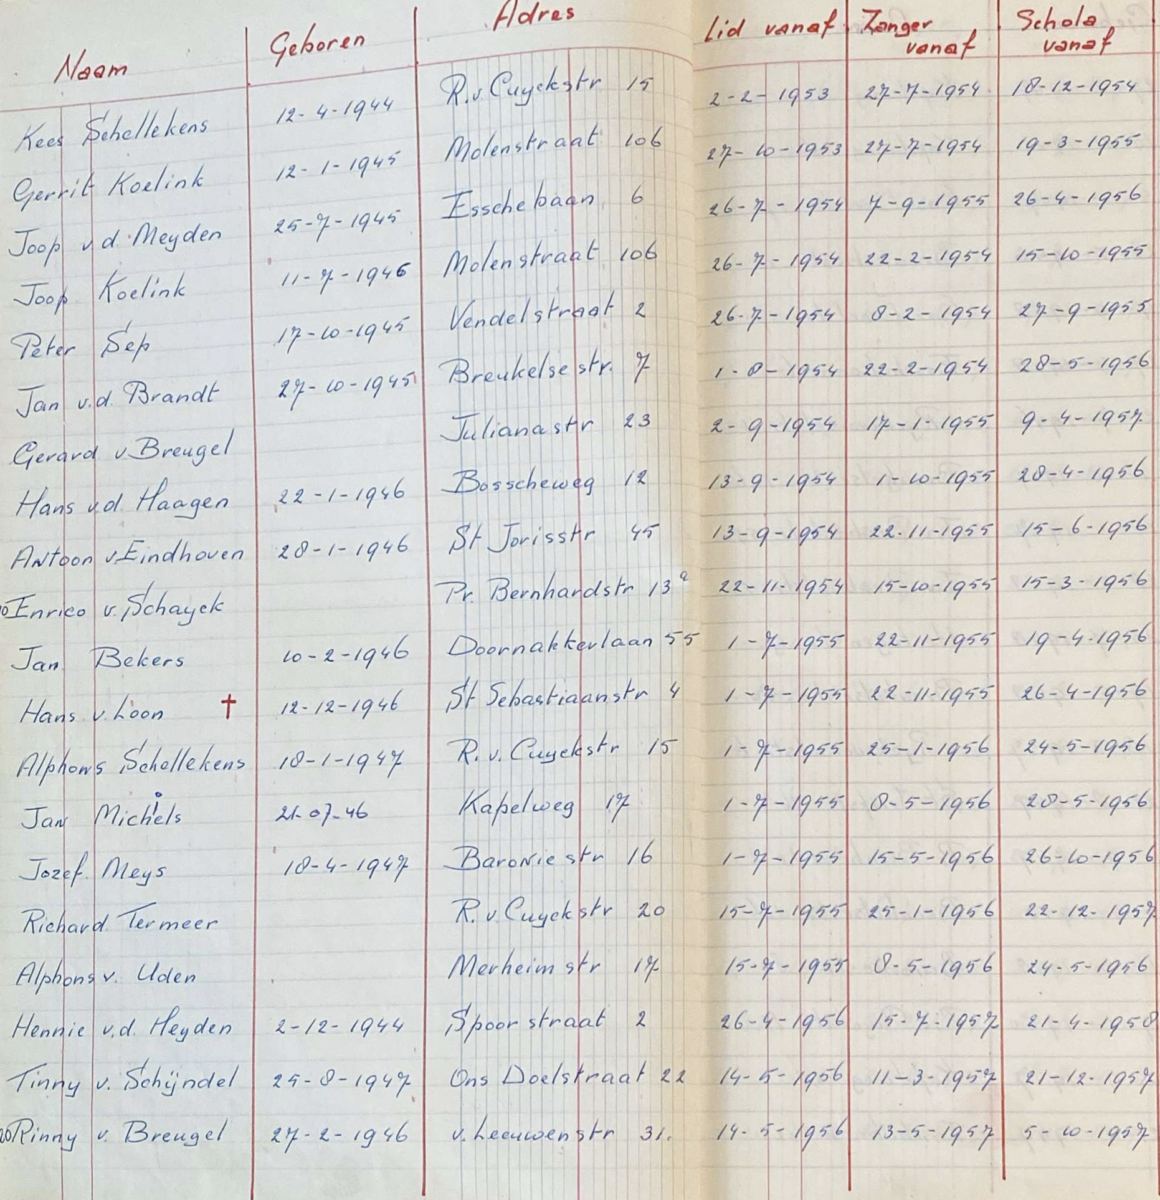 Naam Geboren Adres Lid vanaf Zanger vanaf Schola vanaf
Kees Schellekens 12-4-1944 R.v Cuyckstr 15 2-2-1953 27-7-1954 18-12-1954
Gerrit Koelink 12-1-1945 Molenstraat 106 27-10-1953 27-7-1954 19-3-1955
Joop v.d. Meyden 25-7-1945 Esschebaan 6 26-7-1954 7-9-1955 26-4-1956
Joop Koelink 11-7-1946 Molenstraat 106 26-7-1954 22-2-1954 15-10-1955
Peter Sep 17-10-1945 Vendelstraat 2 26-7-1954 8-2-1954 27-9-1955
Jan v.d. Brandt 27-10-1945 Breukelsestr. 7 1-8-1954 22-2-1954 28-5-1956
Gerard v Breugel Julianastr 23 2-9-1954 17-1-1955 9-4-1957
Hans v.d. Haagen 22-1-1946 Bosscheweg 12 13-9-1954 1-10-1955 28-4-1956
Antoon v.Eindhoven 28-1-1946 St Jorisstr 45 13-9-1954 22-11-1955 15-6-1956
10 Enrico v. Schayck Pr. Bernhardstr 13a 22-11-1954 15-10-1955 15-3-1956
Jan Bekers 10-2-1946 Doornakkerlaan 55 1-7-1955 22-11-1955 19-4-1956
Hans v. Loon † 12-12-1946 St Sebastiaanstr 4 1-7-1955 22-11-1955 26-4-1956
Alphons Schellekens 18-1-1947 R.v. Cuyckstr 15 1-7-1955 25-1-1956 24-5-1956
Jan Michiels 21-07-46 Kapelweg 17 1-7-1955 8-5-1956 28-5-1956
Jozef Meys 18-4-1947 Baroniestr 16 1-7-1955 15-5-1956 26-10-1956
Richard Termeer R.v. Cuyckstr 20 15-7-1955 25-1-1956 22-12-1957
Alphons v. Uden Merheimstr 17 15-7-1955 8-5-1956 24-5-1956
Hennie v.d. Heyden 2-12-1944 Spoorstraat 2 26-4-1956 15-7-1957 21-4-1958
Tinny v. Schijndel 25-8-1947 Ons Doelstraat 22 14-5-1956 11-3-1957 21-12-1957
20 Rinny v. Breugel 27-2-1946 v. Leeuwenstr 31. 14-5-1956 13-5-1957 5-10-1957